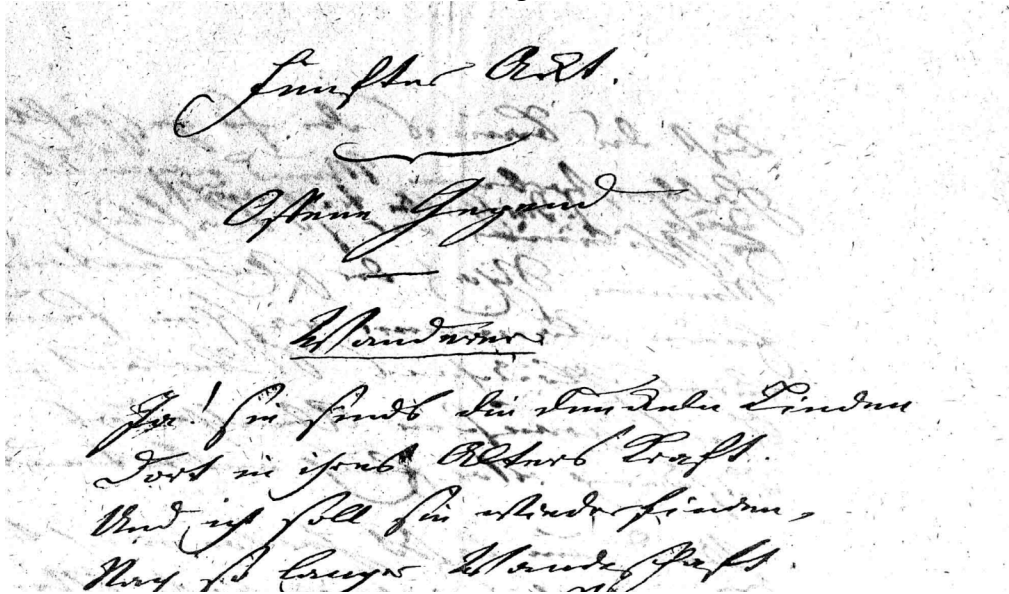 Fünfter Act.
Offene Gegend
Wanderer
Ja! sie sinds die dunckeln Linden
Dort in ihres Alters Kraft.
Und ich soll sie wiederfinden,
Nach so langer Wanderschaft.